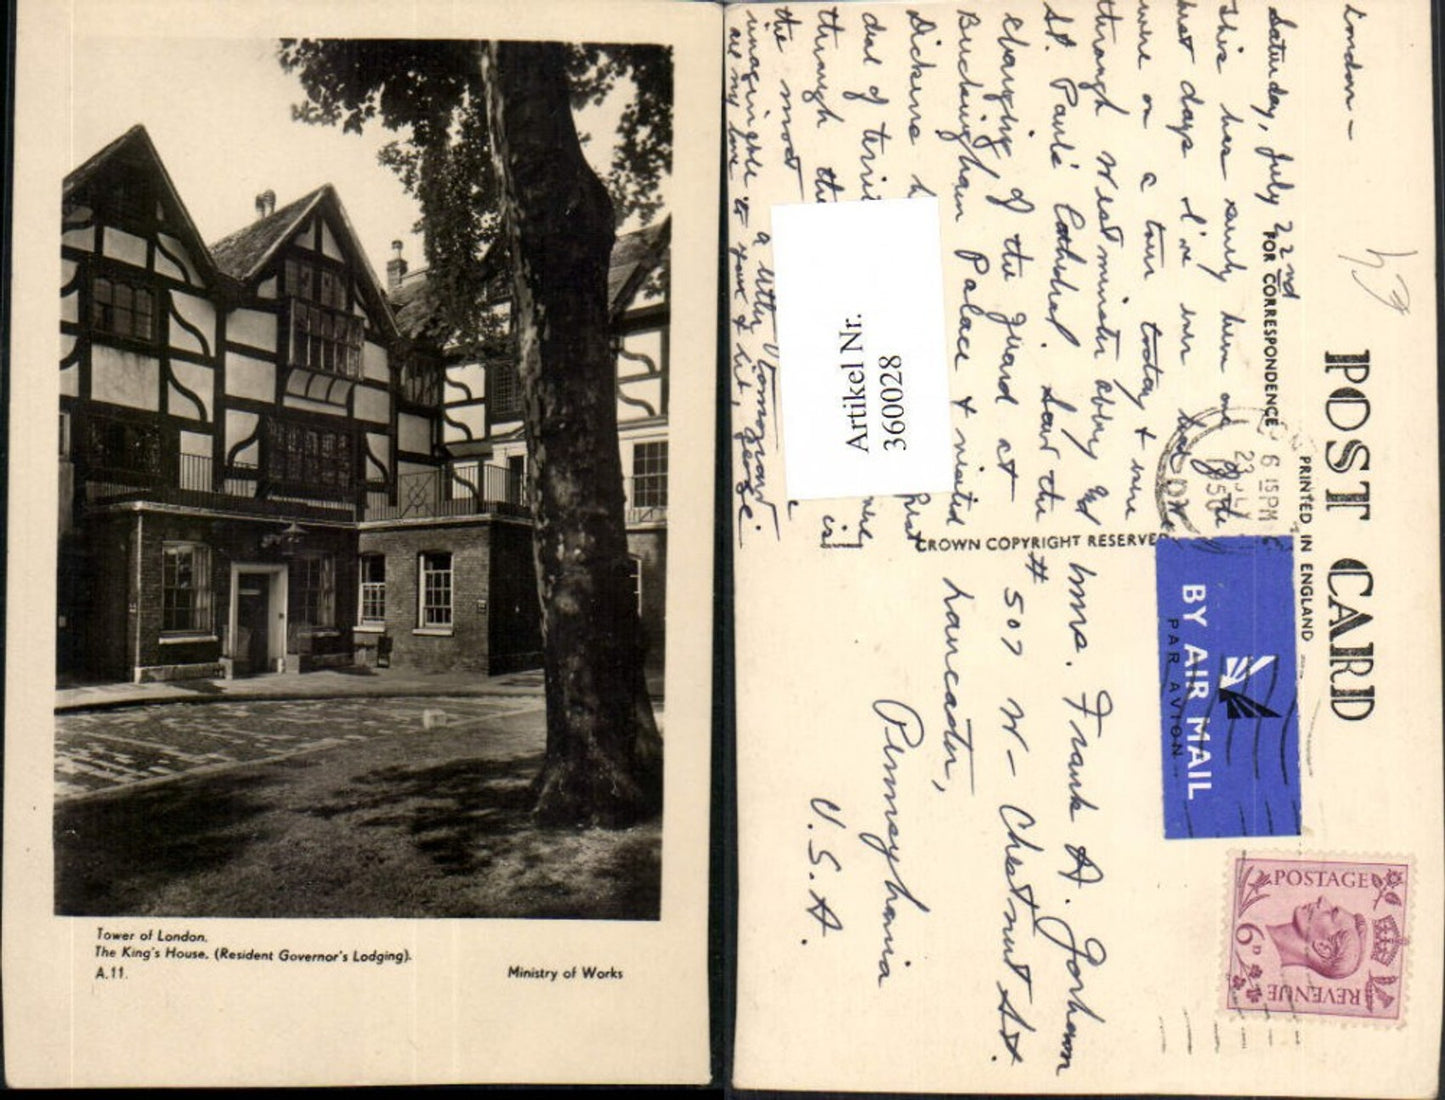 Tower of London.
The King's House. (Resident Governor's Lodging).
A.11.
Ministry of Works
POST CARD
FOR CORRESPONDENCE
PRINTED IN ENGLAND
London —
Saturday, July 22nd
This has surely been one of the
best days I've ever had
were on a tour today & were
through Westminster Abbey and
St. Paul's Cathedral. Saw the
changing of the guard at
Buckingham Palace & visited
Dickens
deal of
through the is
the most
imaginable a letter tomorrow
all my love to you & Kit, George
Artikel Nr.
360028
CROWN COPYRIGHT RESERVED
Mrs. Frank A. Gorham
# 507 W- Chestnut St.
Lancaster,
Pennsylvania
U.S.A.
BY AIR MAIL
PAR AVION
6 15 PM
23 JLY
POSTAGE
6D
REVENUE